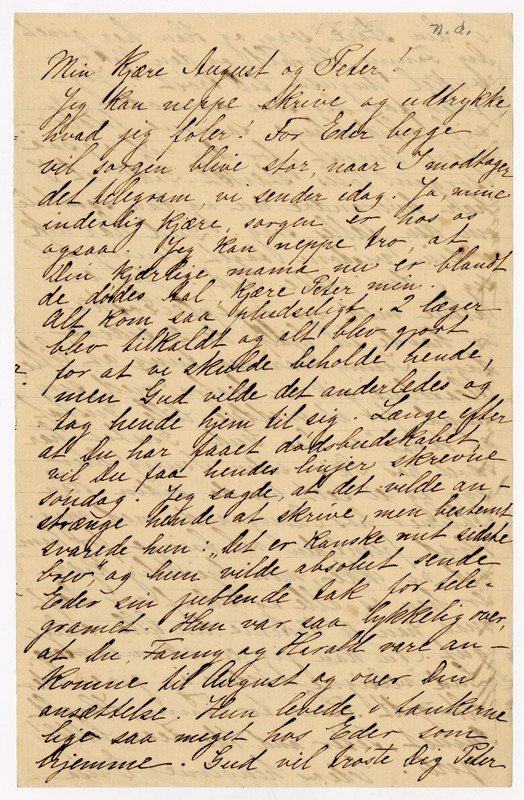 n.d.
Min kjære August og Peter!
Jeg kan neppe skrive og udtrykke,
hvad jeg føler! For Eder begge
vil sorgen blive stor, naar I modtager
det telegram, vi sender idag. Ja, mine
inderlig kjære, sorgen er hos os
ogsaa. Jeg kan neppe tro, at
den kjærlige mama nu er blandt
de dødes tal, kjære Peter min.
Alt kom saa pludseligt. 2 læger
blev tilkaldt og alt blev gjort
for at vi skulde beholde hende,
men Gud vilde det anderledes og
tog hende hjem til sig. Længe efter
at Du har faaet dødsbudskabet
vil Du faa hendes linjer skrevne
søndag. Jeg sagde, at det vilde an-
strænge hende at skrive, men bestemt
svarede hun: „det er kanske mit sidste
brev", og hun vilde absolut sende
Eder sin jublende tak for tele-
gramet. Hun var saa lykkelig over,
at Du, Fanny og Herald vare an-
komne til August og over Din
ansættelse. Hun levede i tankerne
lige saa meget hos Eder som
hjemme. Gud vil trøste Dig Peter